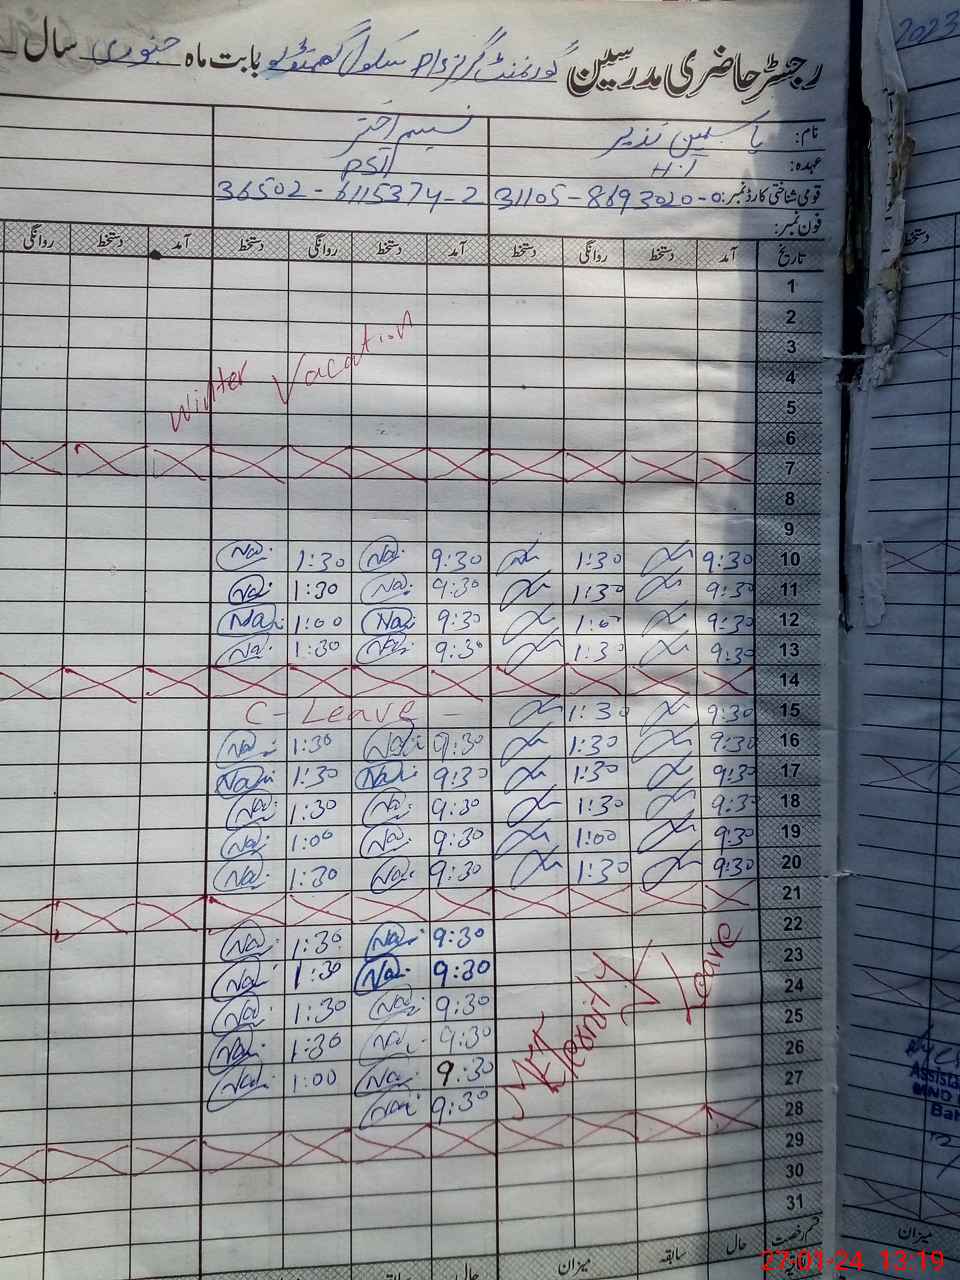 2023
رجسٹر حاضری مدرسین گورنمنٹ گرلز P/s سکول بابت ماہ جنوری سال
نام: یاسمین نذیر نسیم اختر
عہدہ: H.T PST
قومی شناختی کارڈ نمبر: 31105-8693020-0 36502-6115374-2
فون نمبر:
تاریخ آمد دستخط روانگی دستخط آمد دستخط روانگی دستخط آمد دستخط روانگی
دستخط
1
2
3
Winter Vacation
4
5
6
7
8
9
10 9:30 1:30 9:30 Na. 1:30 Na.
11 9:30 1:30 9:30 Na. 1:30 Na.
12 9:30 1:00 9:30 Na. 1:00 Na.
13 9:30 1:30 9:30 Na. 1:30 Na.
14
15 9:30 1:30 C-Leave
16 9:30 1:30 9:30 Na. 1:30 Na.
17 9:30 1:30 9:30 Na. 1:30 Na.
18 9:30 1:30 9:30 Na. 1:30 Na.
19 9:30 1:00 9:30 Na. 1:00 Na.
20 9:30 1:30 9:30 Na. 1:30 Na.
21
22 9:30 Na. 1:30 Na.
23 9:30 Na. 1:30 Na.
24 9:30 Na. 1:30 Na.
25 9:30 Na. 1:30 Na.
26 9:30 Na. 1:00 Na.
27 9:30 Na.
Leave
28
29
30
31
قسم رخصت حال سابقہ میزان حال
میزان
27-01-24 13:19